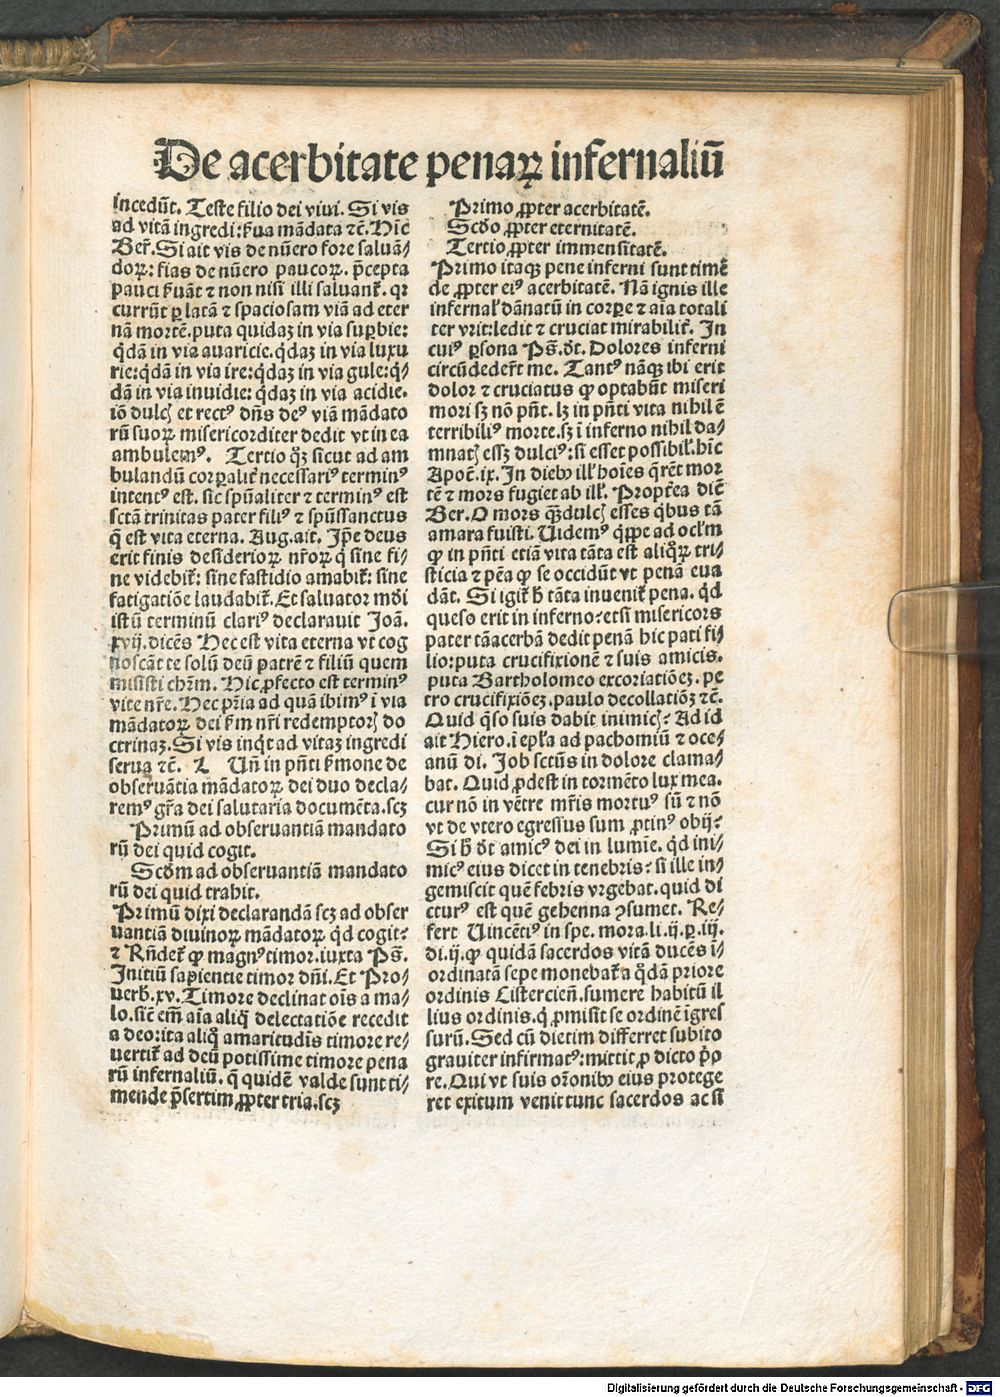 De acerbitate penaꝝ infernaliū
incedūt. Teste filio dei vivi. Si vis
ad vitā ingredi: ẜua mādata ⁊c̄. Hic
Ber̄. Si ait vis de nūero fore saluā⸗
doꝝ: fias de nūero paucoꝝ. p̄cepta
pauci ẜuāt ⁊ non nisi illi saluanť. qꝛ
currūt ꝑ latā ⁊ spaciosam viā ad eter
nā mortē. puta quidaꝫ in via suꝑbie:
q̇dā in via auaricie. q̇daꝫ in via luxu
rie: q̇dā in via ire: q̇daꝫ in via gule: q̇⸗
dā in via inuidie: q̇daꝫ in via acidie.
iō dulcꝭ et rectꝰ dn̄s deꝰ viā mādato
rū suoꝝ misericorditer dedit vt in ea
ambulemꝰ. Tertio qꝫ sicut ad am
bulandū corꝑaliť necessariꝰ terminꝰ
intentꝰ est. sic spūaliter ⁊ terminꝰ est
sctā trinitas pater filiꝰ ⁊ spūssanctus
q̄ est vita eterna. Aug. ait. Ip̄e deus
erit finis desiderioꝝ nr̄oꝝ q̇ sine fi⸗
ne videbiť: sine fastidio amabiť: sine
fatigatiōe laudabiť. Et saluator mūdi
istū terminū clariꝰ declarauit Joā.
xvij. dicēs Hec est vita eterna vt cog
noscāt te solū deū patrē ⁊ filiū quem
misisti chr̄m. Hic ꝓfecto est terminꝰ
vite nr̄e. Hec pr̄ia ad quā ibimꝰ ī via
mādatoꝝ dei ẜm nr̄i redemptorꝭ do
ctrinaꝫ. Si vis inq̇t ad vitaꝫ ingredi
serua ⁊c̄. Un̄ in pn̄ti ẜmone de
obseruātia mādatoꝝ dei duo decla⸗
remꝰ gr̄a dei salutaria documēta. scꝫ
Primū ad obseruantiā mandato
rū dei quid cogit.
Scd̄m ad obseruantiā mandato
rū dei quid trahit.
Primū dixi declarandā scꝫ ad obser
uantiā diuinoꝝ mādatoꝝ q̇d cogit?
⁊ Rn̄deť ꝙ magnꝰ timor. iuxta Ps̄.
Initiū sapientie timor dn̄i. Et Pro⸗
uerb̄. xv. Timore declinat oīs a ma⸗
lo. sic̄ em̄ aīa aliq̄ delectatiōe recedit
a deo: ita aliq̄ amaritudīs timore re⸗
uertiť ad deū potissime timore pena
rū infernaliū. q̄ quidē valde sunt ti⸗
mende p̄sertim ꝓpter tria. scꝫ
Primo ꝓpter acerbitatē.
Scd̄o ꝓpter eternitatē.
Tertio ꝓpter immensitatē.
Primo itaqꝫ pene inferni sunt timē
de ꝓpter eiꝰ acerbitatē. Nā ignis ille
infernal̄ dānatū in corꝑe ⁊ aīa totali
ter vrit: ledit ⁊ cruciat mirabiliť. In
cuiꝰ ꝑsona Ps̄. d̄t. Dolores inferni
circūdedeř̄t me. Tantꝰ nāqꝫ ibi erit
dolor ⁊ cruciatus ꝙ optabūt miseri
mori sꝫ nō pn̄t. lꝫ in pn̄ti vita nihil ē
terribiliꝰ morte. sꝫ ī inferno nihil da⸗
mnatꝭ essꝫ dulciꝰ: si esset possibil̄. hīc
Apoc̄. ix. In diebꝰ ill̄ hoīes q̄rēt mor
tē ⁊ mors fugiet ab ill̄. Propt̄ea dic̄
Ber. O mors qꝫ̄ dulcꝭ esses q̇bus tā
amara fuisti. Uidemꝰ q̇ppe ad ocl̄m
ꝙ in pn̄ti etiā vita tāta est aliq̄ꝝ tri⸗
sticia ⁊ pēa ꝙ se occidūt vt penā eua
dāt. Si igiť h̄ tāta inueniť pena. q̇d
queso erit in inferno? etsi misericors
pater tā acerbā dedit penā hic pati fi⸗
lio: puta crucifixionē ⁊ suis amicis.
puta Bartholomeo excoriatiōeꝫ. pe
tro crucifixiōeꝫ. paulo decollatiōꝫ ⁊c̄.
Quid q̄so suis dabit inimicꝭ? Ad id
ait Hiero. ī epl̄a ad pachomiū ⁊ oce⸗
anū di. Job sctūs in dolore clama⸗
bat. Quid ꝓdest in tormēto lux mea.
cur nō in vētre mr̄is mortuꝰ sū ⁊ nō
vt de vtero egressus sum ꝓtinꝰ obij?
Si h̄ d̄t amicꝰ dei in lumīe. q̇d ini⸗
micꝰ eius dicet in tenebris? si ille in⸗
gemiscit quē febris vrgebat. quid di
cturꝰ est quē gehenna ꝯsumet. Re⸗
fert Uincētiꝰ in spe. mora. li. ij. ꝑ. iij.
di. ij. ꝙ quidā sacerdos vitā ducēs ī⸗
ordinatā sepe monebať a q̇dā priore
ordinis Cistercien̄. sumere habitū il
lius ordinis. q̇ ꝓmisit se ordinē īgres
surū. Sed cū dietim differret subito
grauiter infirmatꝰ: mittit ꝓ dicto p̄o
re. Qui vt suis or̄onibꝰ eius protege
ret exitum venit tunc sacerdos ac si
Digitalisierung gefördert durch die Deutsche Forschungsgemeinschaft - DFG